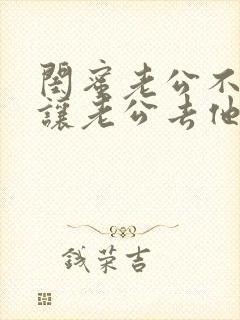 閨蜜老公不
讓老公去他
錢荣吉